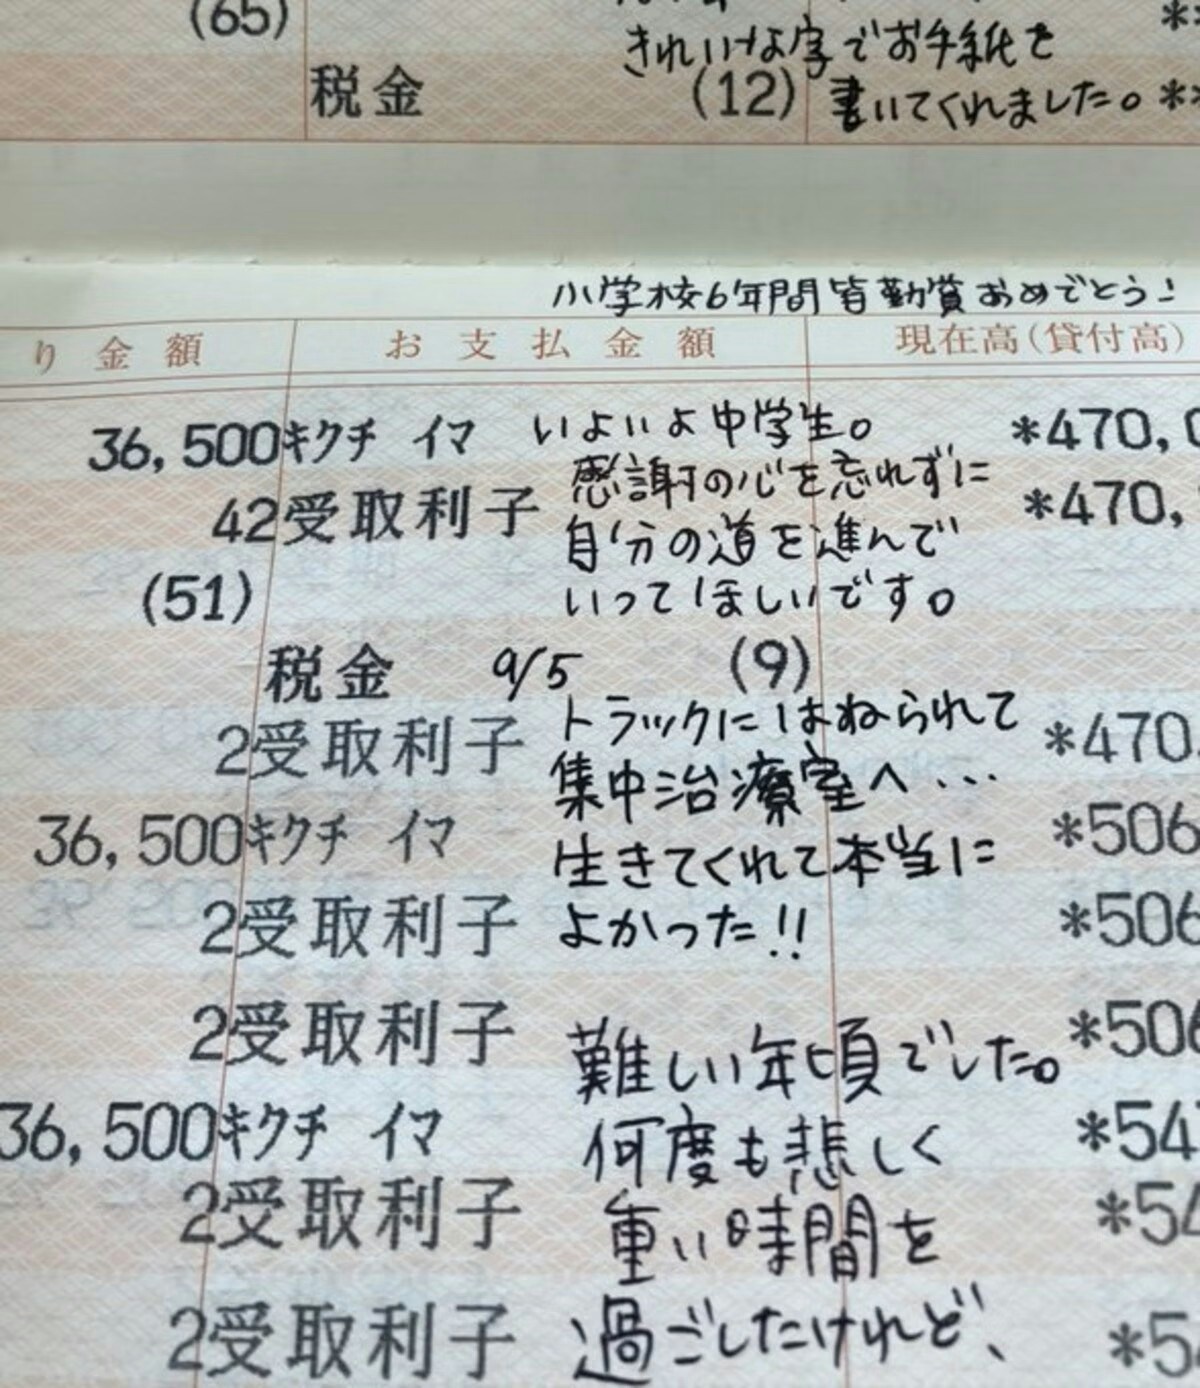 (65)
きれいな字でお手紙を
税金 (12) 書いてくれました。 *
小学校6年間皆勤賞おめでとう!
り金額 お支払金額 現在高(貸付高)
36,500 キクチ イマ いよいよ中学生。 *470,0
感謝の心を忘れずに
42 受取利子 *470,
自分の道を進んで
(51) いってほしいです。
税金 9/5 (9)
トラックにはねられて
2 受取利子 *470
集中治療室へ...
36,500 キクチ イマ *506
生きてくれて本当に
2 受取利子 よかった!! *506
2 受取利子 *506
難しい年頃でした。
36,500 キクチ イマ 何度も悲しく *54
2 受取利子 重い時間を *54
2 受取利子 過ごしたけれど、 *5